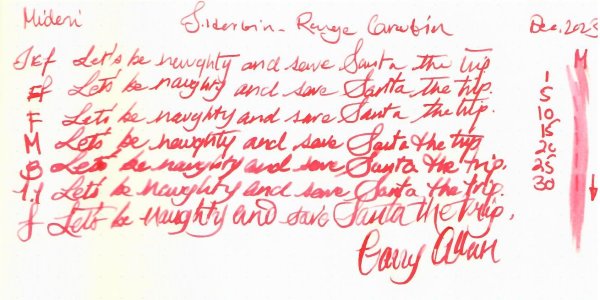 Midori Siderbin - Range Carubin Dec. 2023
Ex f Let's be naughty and save Santa the trip M
EF Let's be naughty and save Santa the trip. 1
F Let's be naughty and save Santa the trip. 5
M Let's be naughty and save Santa the trip 10
B Let's be naughty and save Santa the trip. 15
1.1 Let's be naughty and save Santa the trip. 20
f Let's be naughty and save Santa the trip. 25
30
Garry Allan